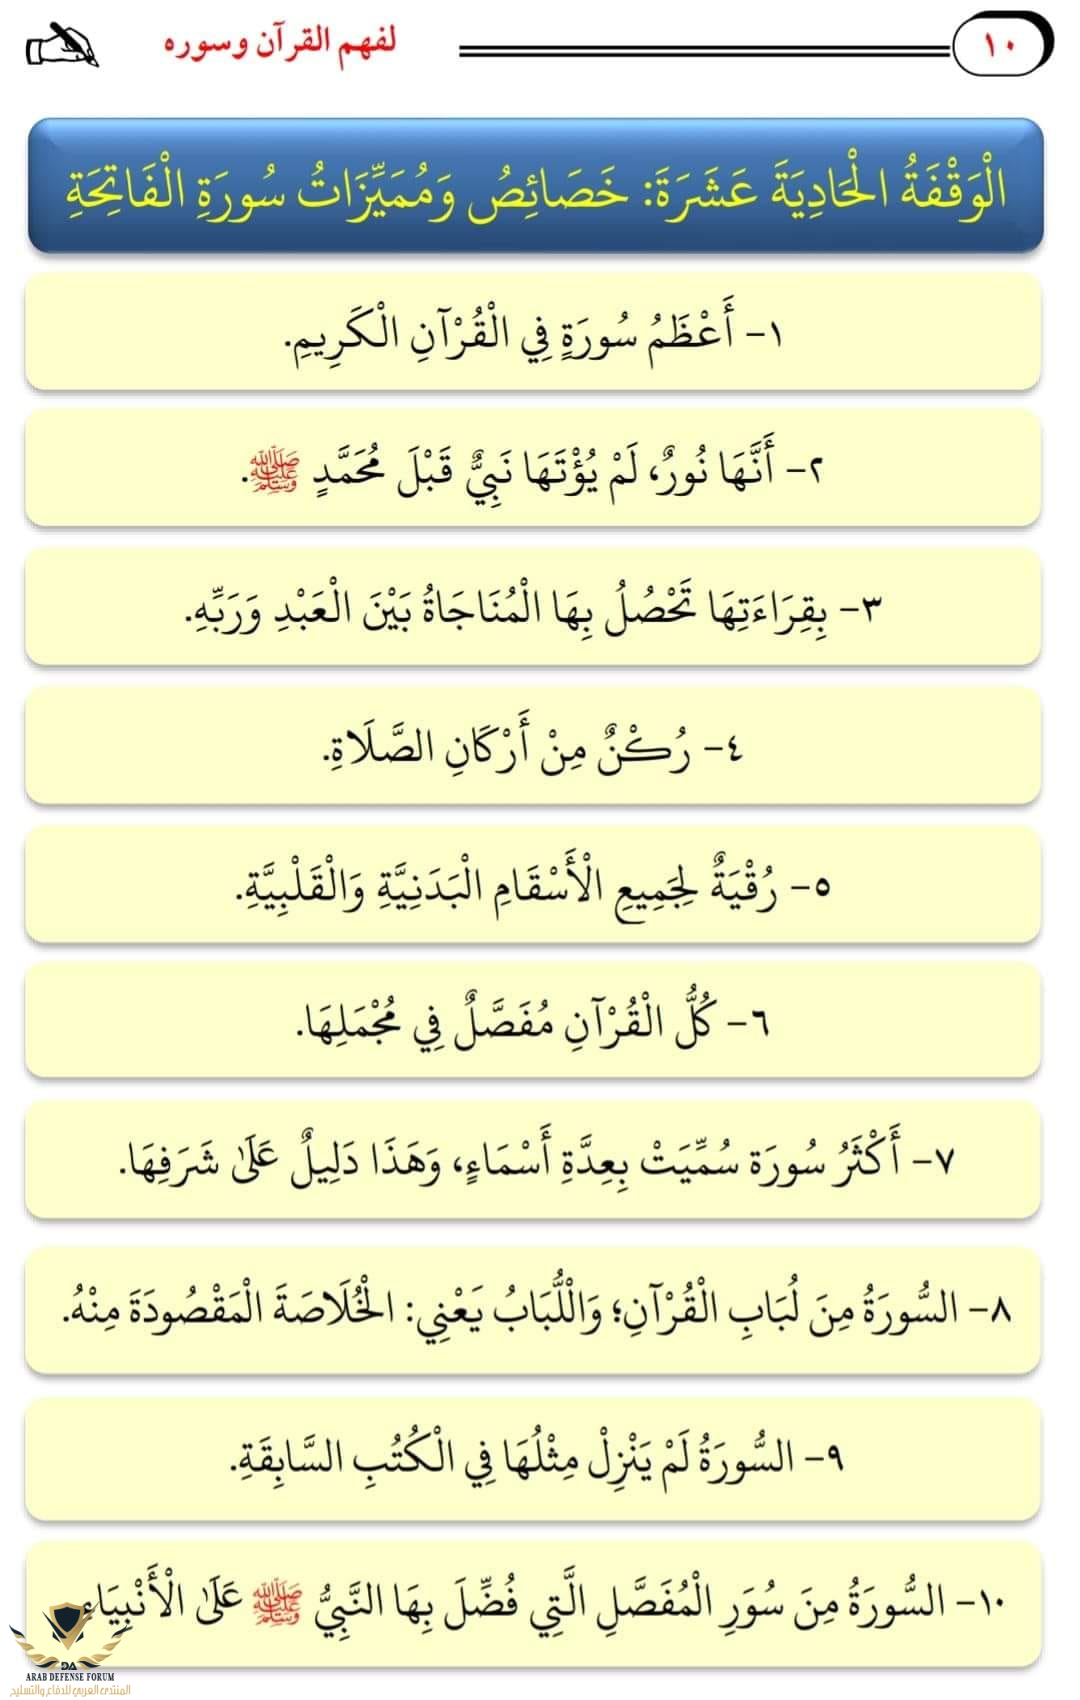 ١٠
لفهم القرآن وسوره
الْوَقْفَةُ الْحَادِيَةَ عَشَرَةَ: خَصَائِصُ وَمُمَيِّزَاتُ سُورَةِ الْفَاتِحَةِ
١- أَعْظَمُ سُورَةٍ فِي الْقُرْآنِ الْكَرِيمِ.
٢- أَنَّهَا نُورٌ، لَمْ يُؤْتَهَا نَبِيٌّ قَبْلَ مُحَمَّدٍ ﷺ.
٣- بِقِرَاءَتِهَا تَحْصُلُ بِهَا الْمُنَاجَاةُ بَيْنَ الْعَبْدِ وَرَبِّهِ.
٤- رُكْنٌ مِنْ أَرْكَانِ الصَّلَاةِ.
٥- رُقْيَةٌ لِجَمِيعِ الْأَسْقَامِ الْبَدَنِيَّةِ وَالْقَلْبِيَّةِ.
٦- كُلُّ الْقُرْآنِ مُفَصَّلٌ فِي مُجْمَلِهَا.
٧- أَكْثَرُ سُورَة سُمِّيَتْ بِعِدَّةِ أَسْمَاءٍ، وَهَذَا دَلِيلٌ عَلَى شَرَفِهَا.
٨- السُّورَةُ مِنَ لُبَابِ الْقُرْآنِ؛ وَاللُّبَابُ يَعْنِي: الْخُلَاصَةَ الْمَقْصُودَةَ مِنْهُ.
٩- السُّورَةُ لَمْ يَنْزِلْ مِثْلُهَا فِي الْكُتُبِ السَّابِقَةِ.
١٠- السُّورَةُ مِنَ سُوَرِ الْمُفَصَّلِ الَّتِي فُضِّلَ بِهَا النَّبِيُّ ﷺ عَلَى الْأَنْبِيَاءِ
ARAB DEFENSE FORUM
المنتدى العربي للدفاع والتسليح